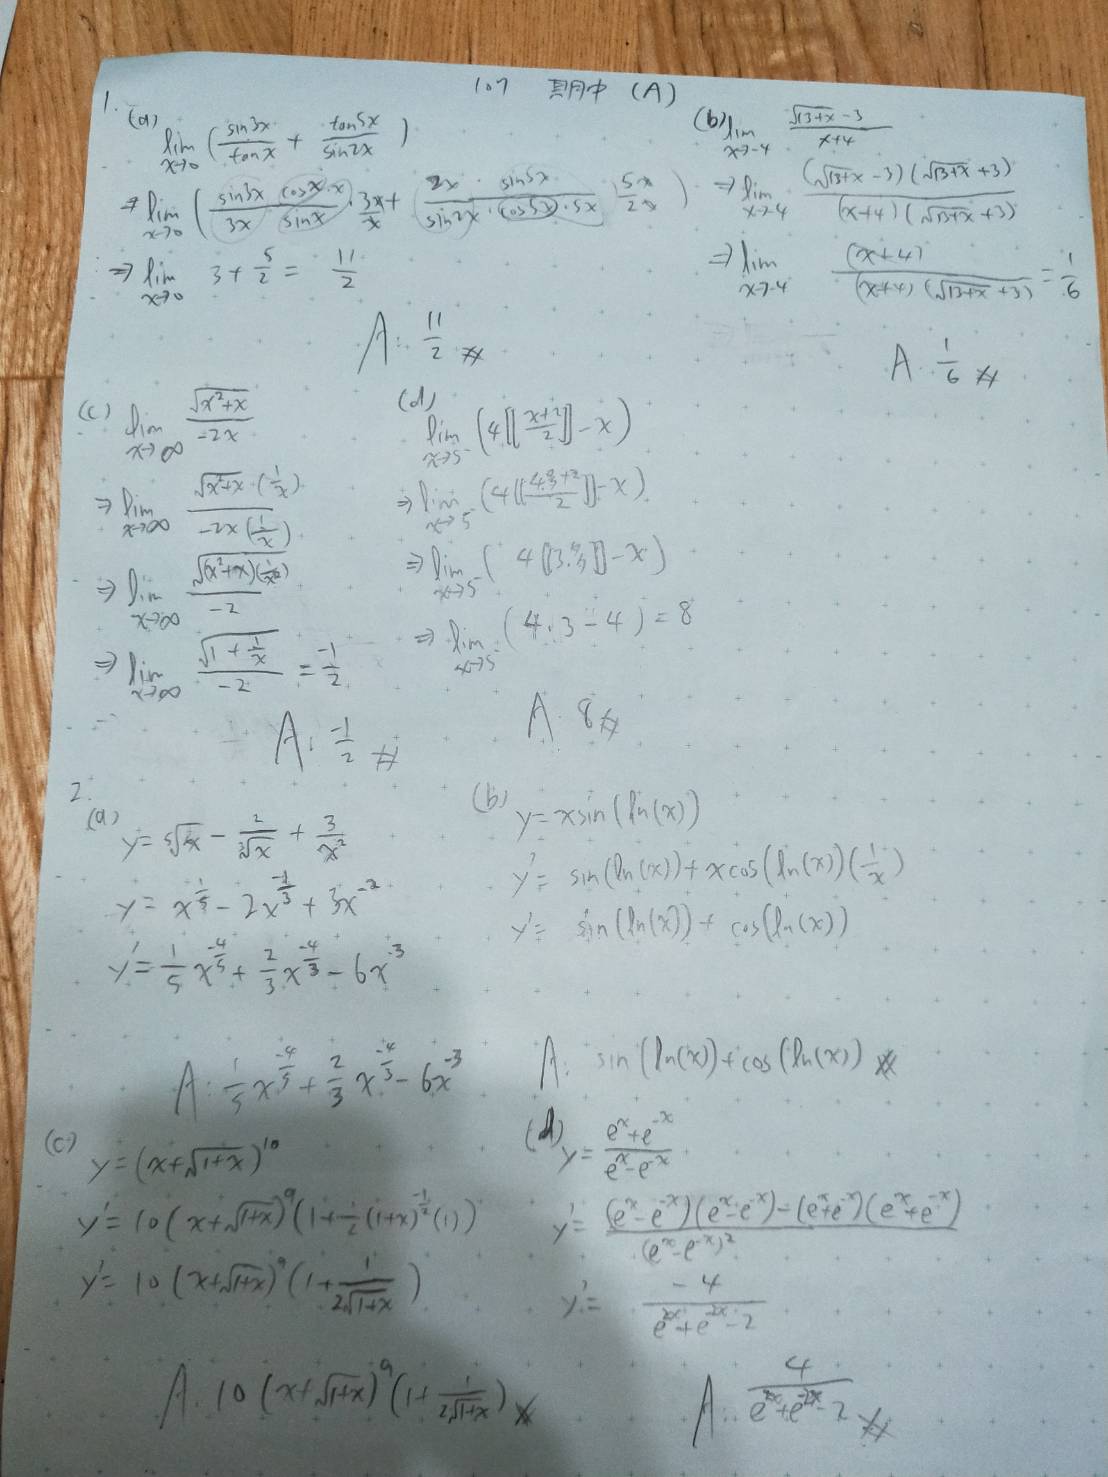 107 期中 (A)
1.
(a) lim x→0 (sin3x/tanx + tan5x/sin2x)
⇒ lim x→0 (sin3x cosx·x/3x sinx · 3x/x + 2x·sin5x/sin2x·cos5x·5x · 5x/2x)
⇒ lim x→0 3 + 5/2 = 11/2
A: 11/2
(b) lim x→-4 (√(13+x) - 3)/(x+4)
⇒ lim x→-4 (√(13+x) - 3)(√(13+x) + 3)/((x+4)(√(13+x) + 3))
⇒ lim x→-4 (x+4)/((x+4)(√(13+x) + 3)) = 1/6
A 1/6
(c) lim x→∞ √(x²+x)/-2x
⇒ lim x→∞ √(x²+x)·(1/x)/-2x(1/x)
⇒ lim x→∞ √((x²+x)(1/x²))/-2
⇒ lim x→∞ √(1 + 1/x)/-2 = -1/2
A: -1/2
(d) lim x→5⁻ (4[[x+2/2]] - x)
⇒ lim x→5⁻ (4[[+2/2]] - x)
⇒ lim x→5⁻ (4[[3.]] - x)
⇒ lim x→5⁻ (4·3 - 4) = 8
A: 8
2.
(a) y = ⁵√x - 2/³√x + 3/x²
y = x^(1/5) - 2x^(-1/3) + 3x^(-2)
y' = 1/5 x^(-4/5) + 2/3 x^(-4/3) - 6x^(-3)
A: 1/5 x^(-4/5) + 2/3 x^(-4/3) - 6x^(-3)
(b) y = xsin(ln(x))
y' = sin(ln(x)) + xcos(ln(x))(1/x)
y' = sin(ln(x)) + cos(ln(x))
A: sin(ln(x)) + cos(ln(x))
(c) y = (x+√(1+x))^10
y' = 10(x+√(1+x))^9 (1 + 1/2(1+x)^(-1/2)(1))
y' = 10(x+√(1+x))^9 (1 + 1/(2√(1+x)))
A: 10(x+√(1+x))^9 (1 + 1/(2√(1+x)))
(d) y = (e^x + e^-x)/(e^x - e^-x)
y' = ((e^x - e^-x)(e^x - e^-x) - (e^x + e^-x)(e^x + e^-x))/(e^x - e^-x)²
y' = -4/(e^2x + e^-2x - 2)
A: 4/(e^2x + e^-2x - 2)